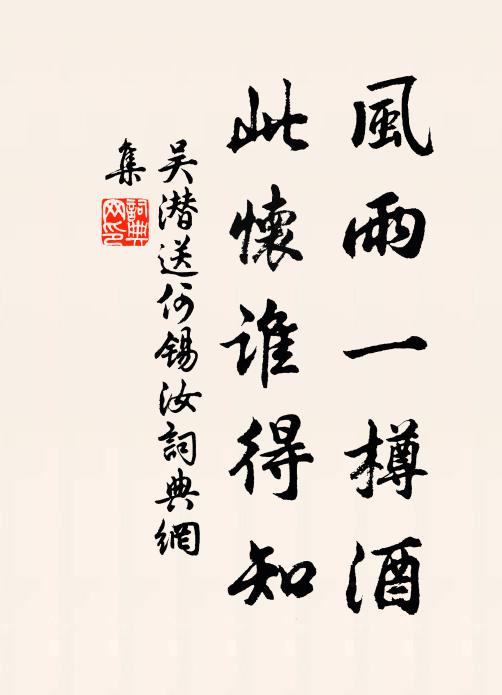 風雨一樽酒
此懷誰得知
吴潜送何錫汝詞典網
集
詞典网印